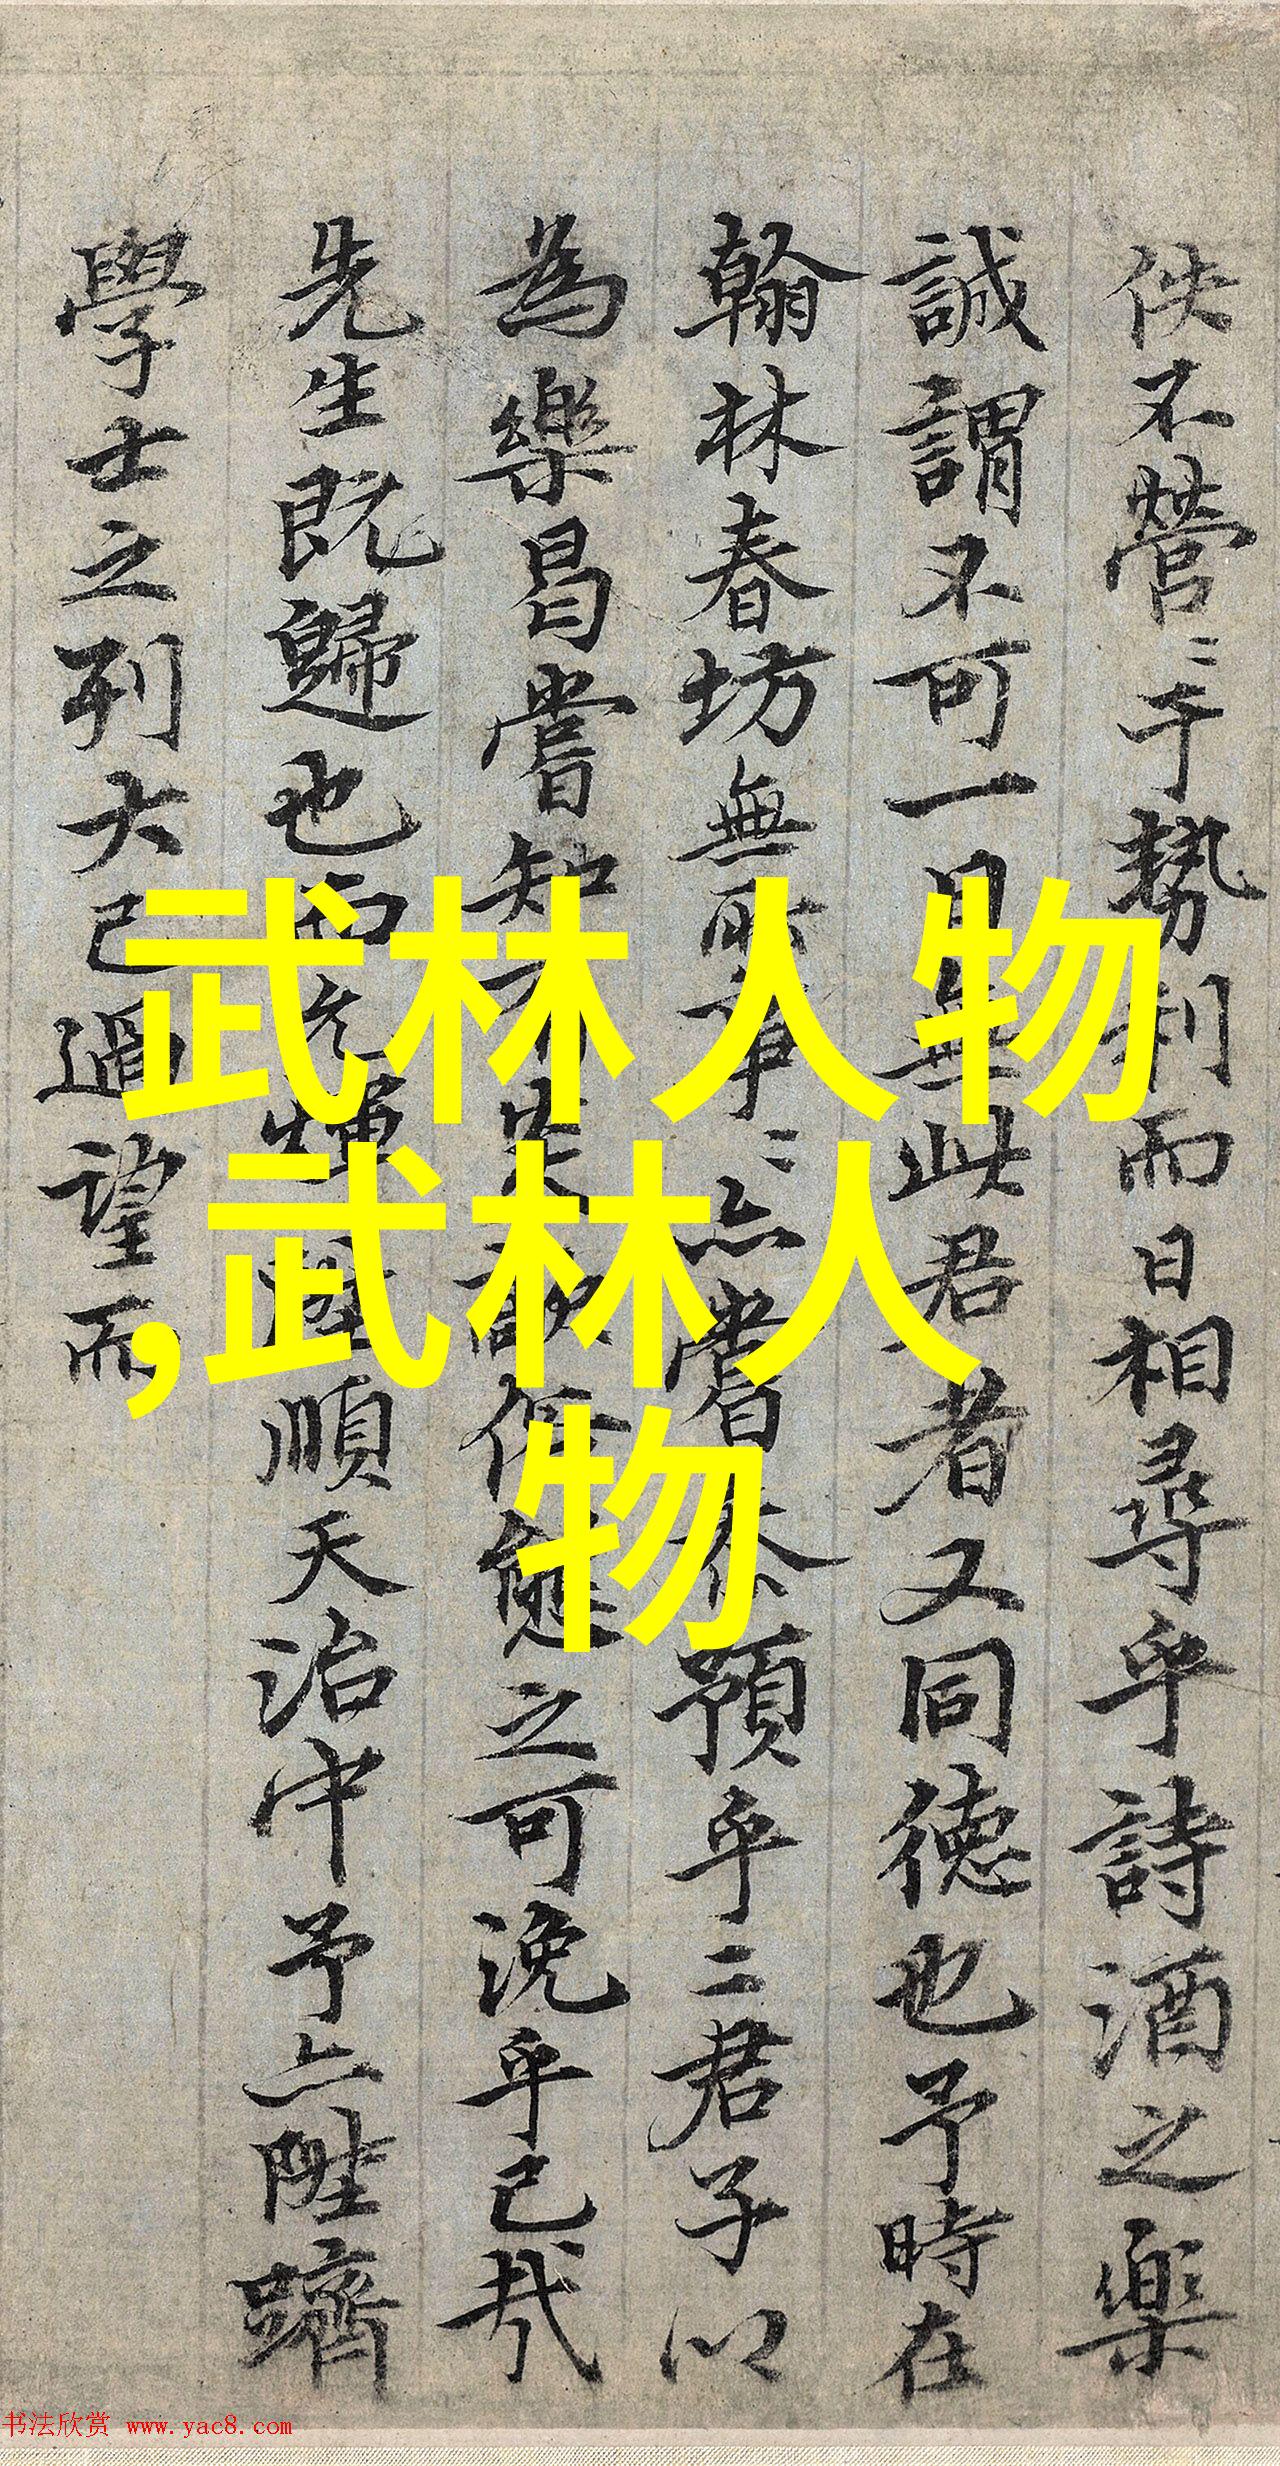 佚不營=于勢利而日相尋乎詩酒之樂
誠謂不可一日無此君者又同德也予時在
翰林春坊無所事=亦嘗忝預乎二君子以
為樂曷嘗知不樂歌係戀之可浼乎己哉
先生既歸也而以煇陞順天治中予亦陞躋
學士之列大已過望而
武林人物
,武林人
物
书法欣赏 www.yac8.com